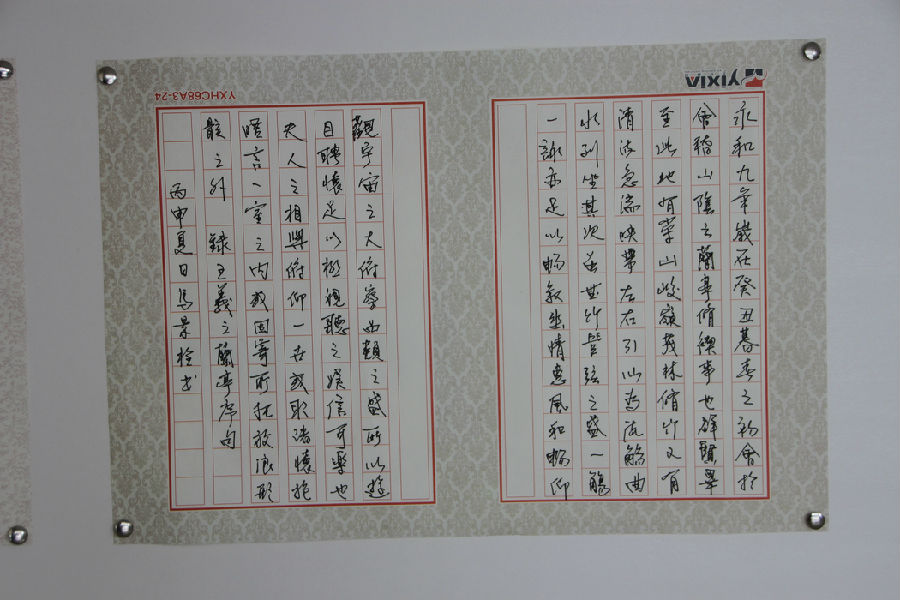 YIXIA
永和九年歲在癸丑暮春之初會於
會稽山陰之蘭亭脩禊事也群賢畢
至此地有崇山峻嶺茂林脩竹又有
清流急湍映帶左右引以為流觴曲
水列坐其次無絲竹管弦之盛一觴
一詠亦足以暢敘幽情惠風和暢仰
YXHC68A3-24
觀宇宙之大俯察品類之盛所以遊
目騁懷足以極視聽之娛信可樂也
夫人之相與俯仰一世或取諸懷抱
晤言一室之內或因寄所託放浪形
骸之外 錄王羲之蘭亭序句
丙申夏日馬景栓書